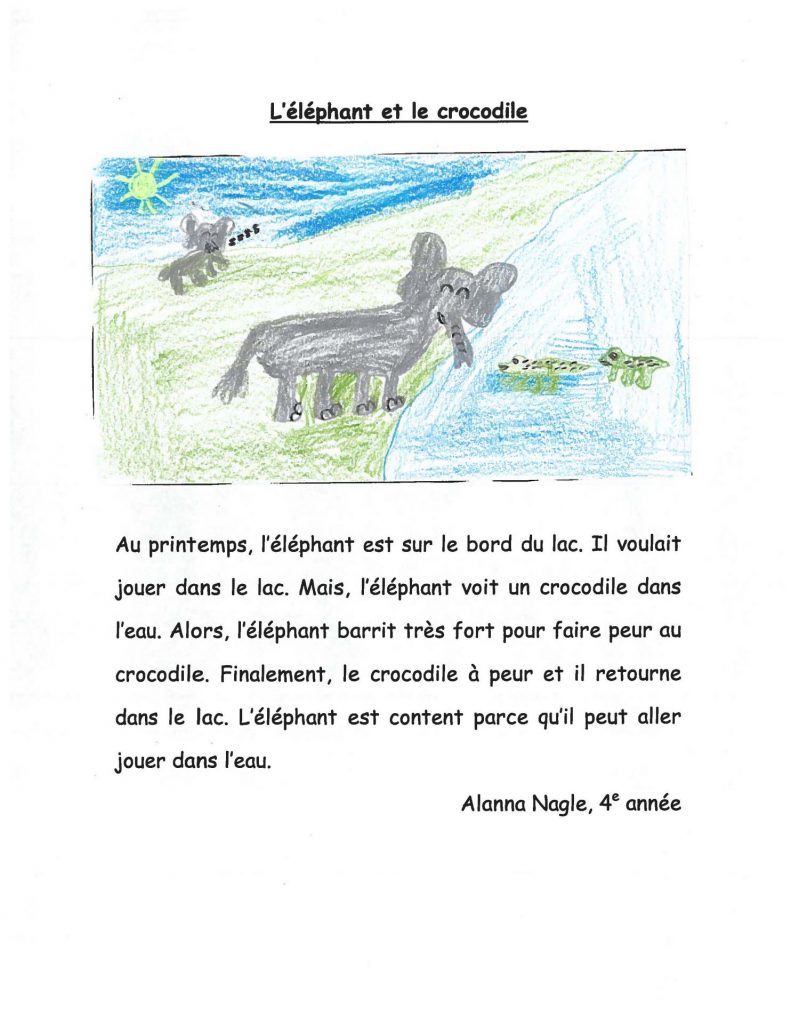 L'éléphant et le crocodile
Au printemps, l'éléphant est sur le bord du lac. Il voulait
jouer dans le lac. Mais, l'éléphant voit un crocodile dans
l'eau. Alors, l'éléphant barrit très fort pour faire peur au
crocodile. Finalement, le crocodile à peur et il retourne
dans le lac. L'éléphant est content parce qu'il peut aller
jouer dans l'eau.
Alanna Nagle, 4e année